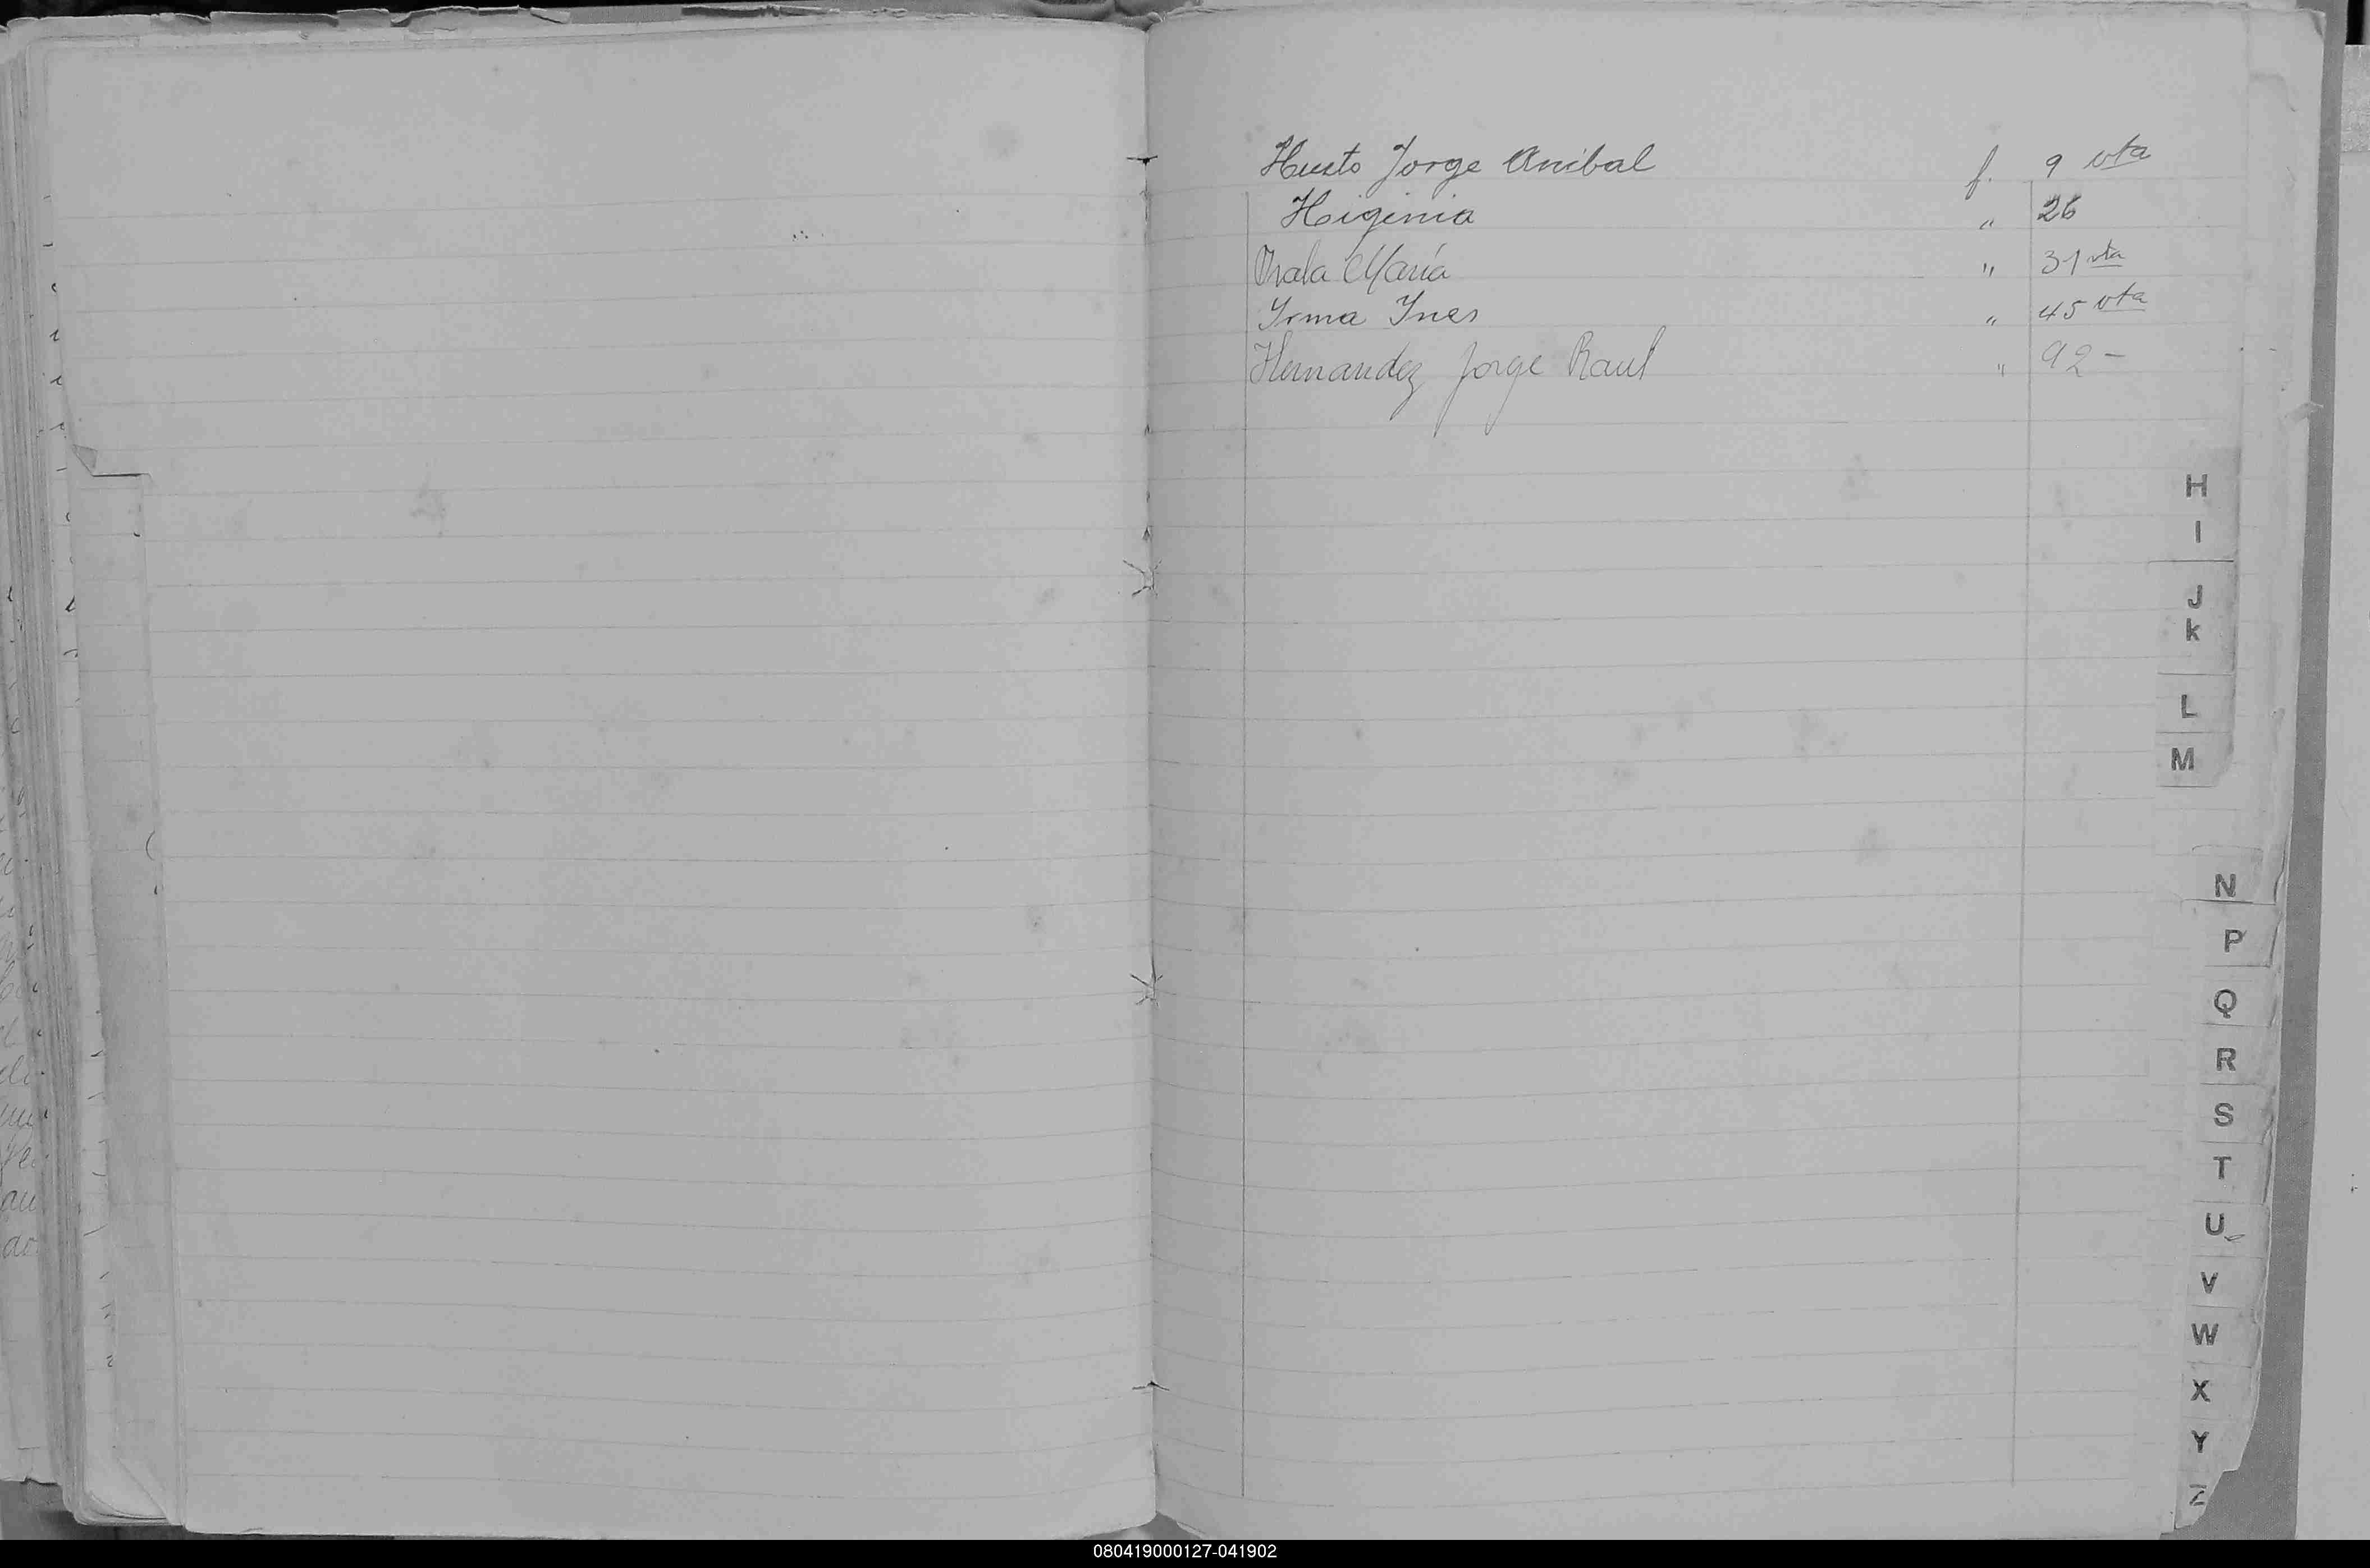 Husto Jorge Anibal f. 9 vta
Higinia " 26
María " 31 vta
Yrma Ynes " 45 vta
Hernandez Jorge Raul " 92 -
H
I
J
K
L
M
N
P
Q
R
S
T
U
V
W
X
Y
Z
080419000127-041902